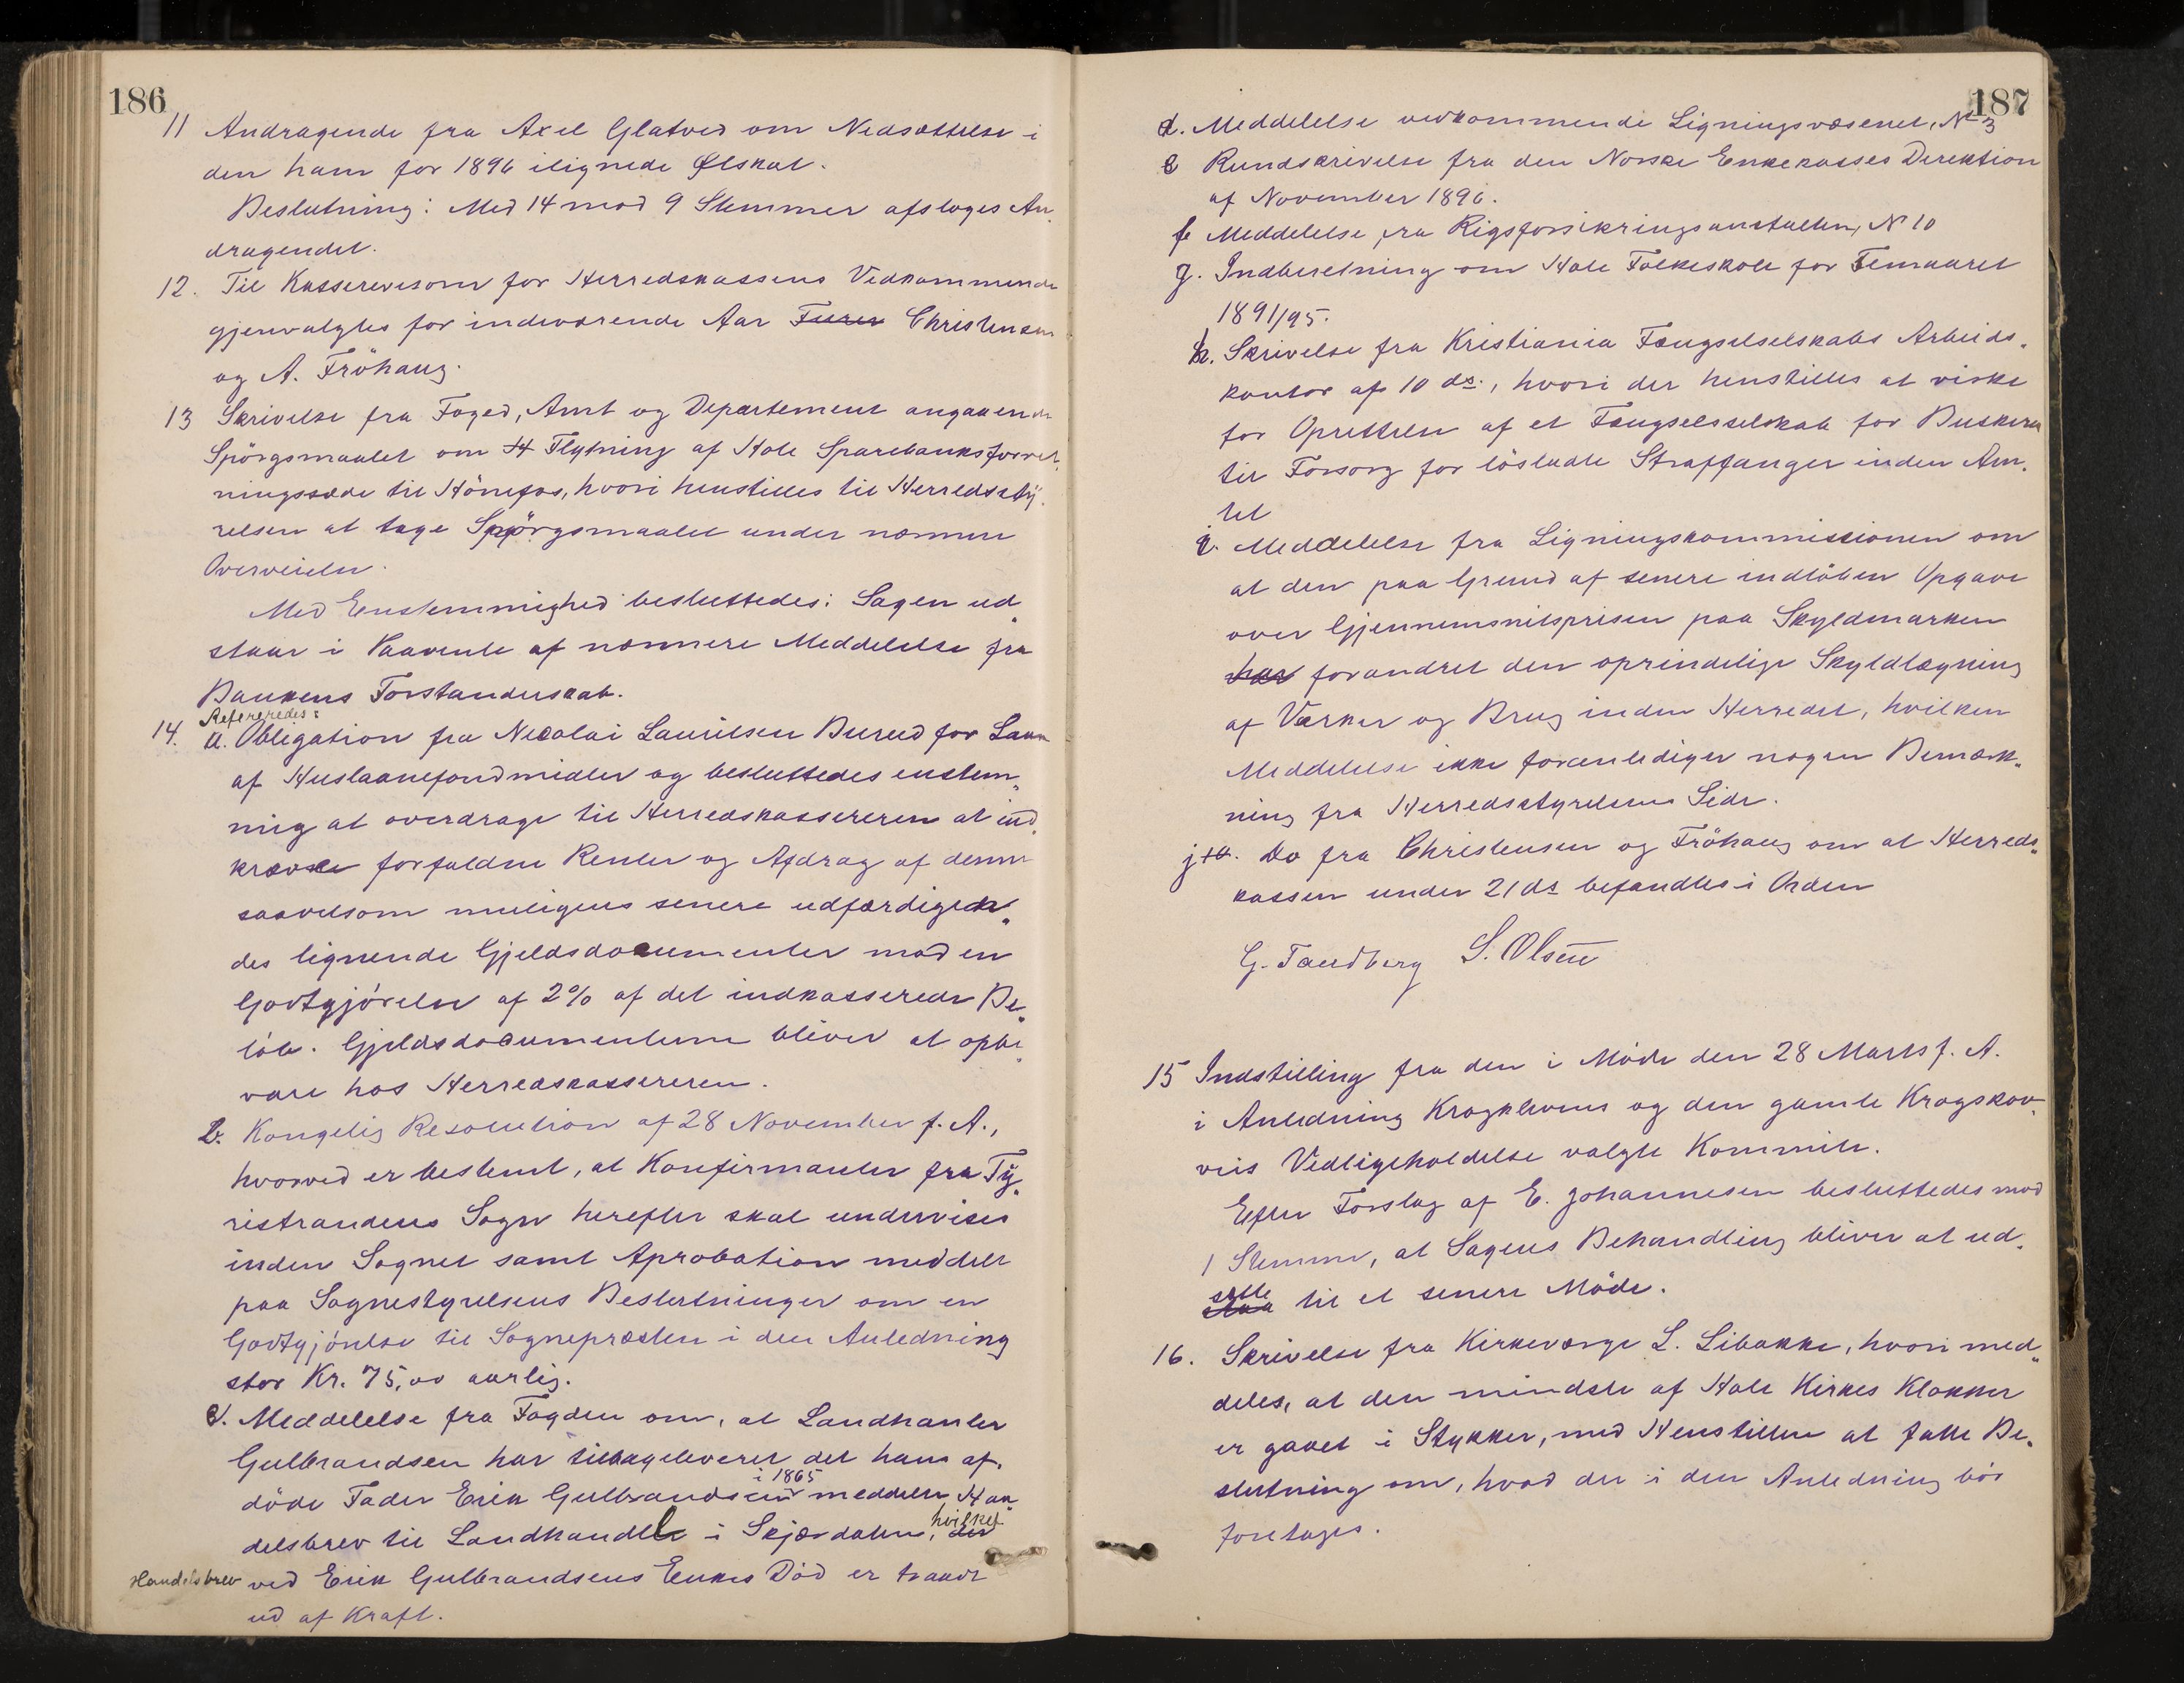 186
11 Andragende fra Axel Glatved om Nedsættelse i
den ham for 1896 ilignede Ølskat.
Beslutning: Med 14 mod 9 Stemmer afsloges An„
dragendet.
12. Til Kasserevisorer for Herredskassens Vedkommende
gjenvalgtes for indeværende Aar Furer Christensen
og A. Fröhaug.
13 Skrivelse fra Foged, Amt og Departement angaaende
Spörgsmaalet om Flytning af Hole Sparebanksforret„
ningssæde til Hönefos, hvori henstilles til Herredssty„
relsen at tage Spörgsmaalet under nærmere
Overveielse.
Med Eenstemmighed besluttedes: Sagen ud„
staar i Paavente af nærmere Meddelelse fra
Bankens Forstanderskab.
Refereredes:
14. a. Obligation fra Nicolai Lauritsen Burud for Laan
af Huslaanefondmidler og besluttedes enstem„
mig at overdrage til Herredskassereren at ind„
kræve forfaldne Renter og Afdrag af denne
saavelsom muligens senere udfærdigen„
des lignende Gjeldsdocumenter mod en
Godtgjörelse af 2% af det indkasserede Be„
löb. Gjeldsdocumenterne bliver at opbe„
vare hos Herredskassereren.
b. Kongelig Resolution af 28 November f. A.,
hvorved er bestemt, at Konfirmanter fra Ty„
ristrandens Sogn herefter skal undervises
inden Sognet samt Aprobation meddelt
paa Sognestyrelsens Beslutninger om en
Godtgjörelse til Sognepræsten i den Anledning
stor Kr. 75,00 aarlig.
c. Meddelelse fra Fogden om, at Landhanler
Gulbrandsen har tilbageleveret det hans af„
i 1865
döde Fader Erik Gulbrandsen meddelte Han„
hvilket
delsbrev til Landhandel i Skjærdalen, der
Handelsbrev ved Erik Gulbrandsens Enkes Död er traadt
ud af Kraft.
187
d. Meddelelse vedkommende Ligningsvæsenet, N 3
e Rundskrivelse fra den Norske Enkekasses Direktion
af November 1896.
f Meddelelse fra Rigsforsikringsanstalten, N 10
g. Indberetning om Hole Folkeskole for Femaaret
1891/95.
h. Skrivelse fra Kristiania Fængselselskabs Arbeids„
kontor af 10 ds., hvori der henstilles at virke
for Oprettelse af et Fængselsselskab for Buskerud
til Forsorg for löslatte Straffanger inden Am„
tet
i. Meddelelse fra Ligningskommissionen om
at den paa Grund af senere indlöben Opgave
over Gjennemsnitsprisen paa Skyldmarken
har forandret den oprindelige Skyldlægning
af Værker og Brug inden Herredet, hvilken
Meddelelse ikke foranlediger nogen Bemærk„
ning fra Herredsstyrelsens Side.
j. Do fra Christensen og Fröhaug om at Herreds„
kassen under 21 ds befandtes i Orden
G. Tandberg S. Olsen
15 Indstilling fra den i Möde den 28 Marts f. A.
i Anledning Krogklevens og den gamle Krogskov„
veis Vedligeholdelse valgte Kommite.
Efter Forslag af E. Johannesen besluttedes mod
1 Stemme, at Sagens Behandling bliver at ud„
sætte
staa til et senere Möde.
16. Skrivelse fra Kirkeværge L. Libakke, hvori med„
deles, at den mindste af Hole Kirkes Klokker
er gaaet i Stykker, med Henstillen at fatte Be„
slutning om, hvad der i den Anledning bör
foretages.